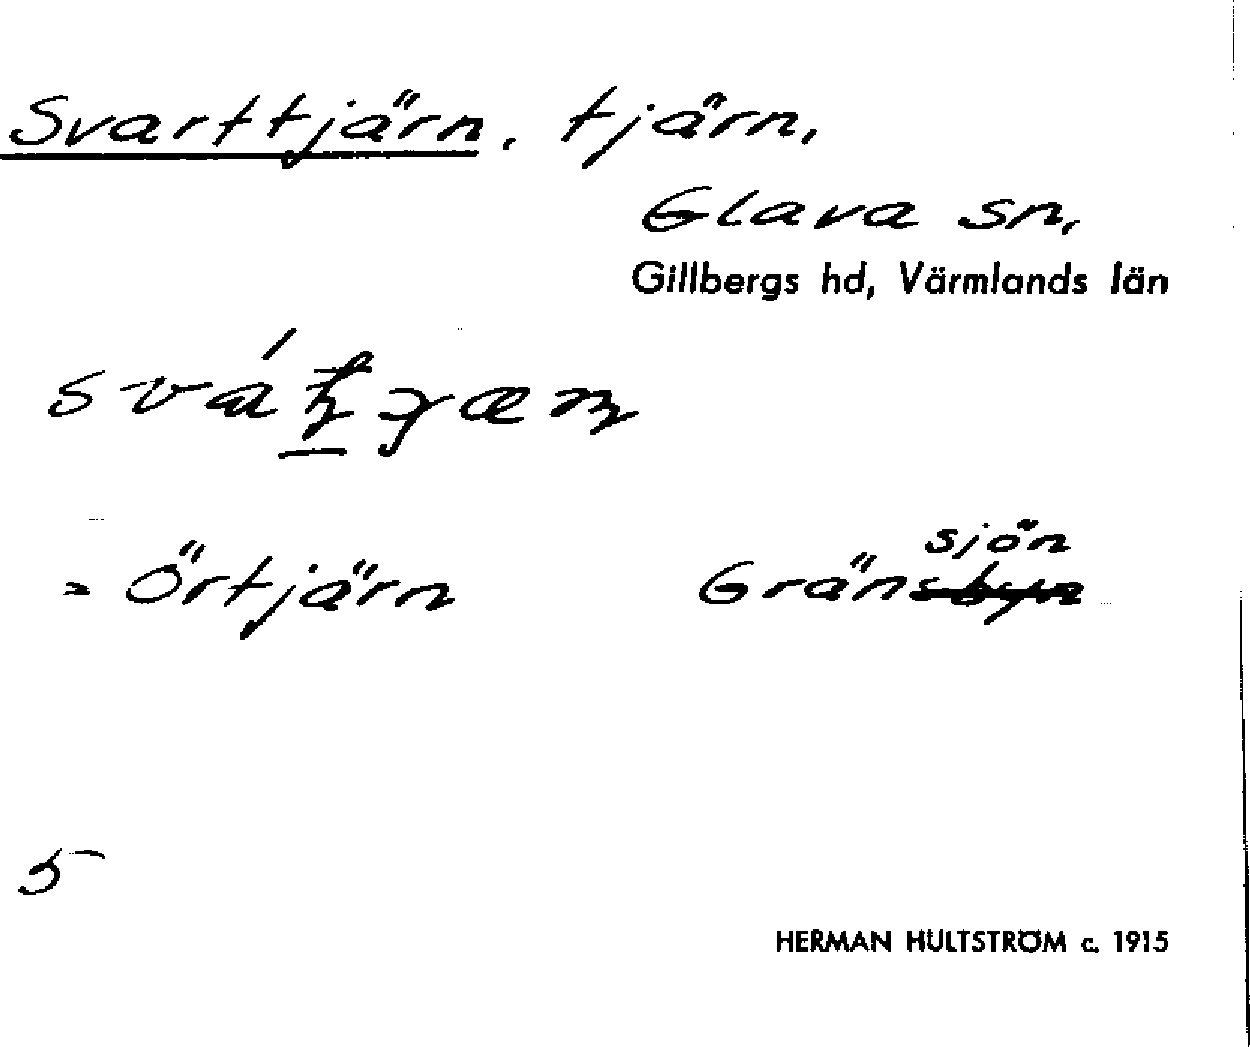 Svarttjärn, tjärn,
Glava sn,
Gillbergs hd, Värmlands län
= Örtjärn Gränsbyn sjön
5
HERMAN HULTSTRÖM c. 1915